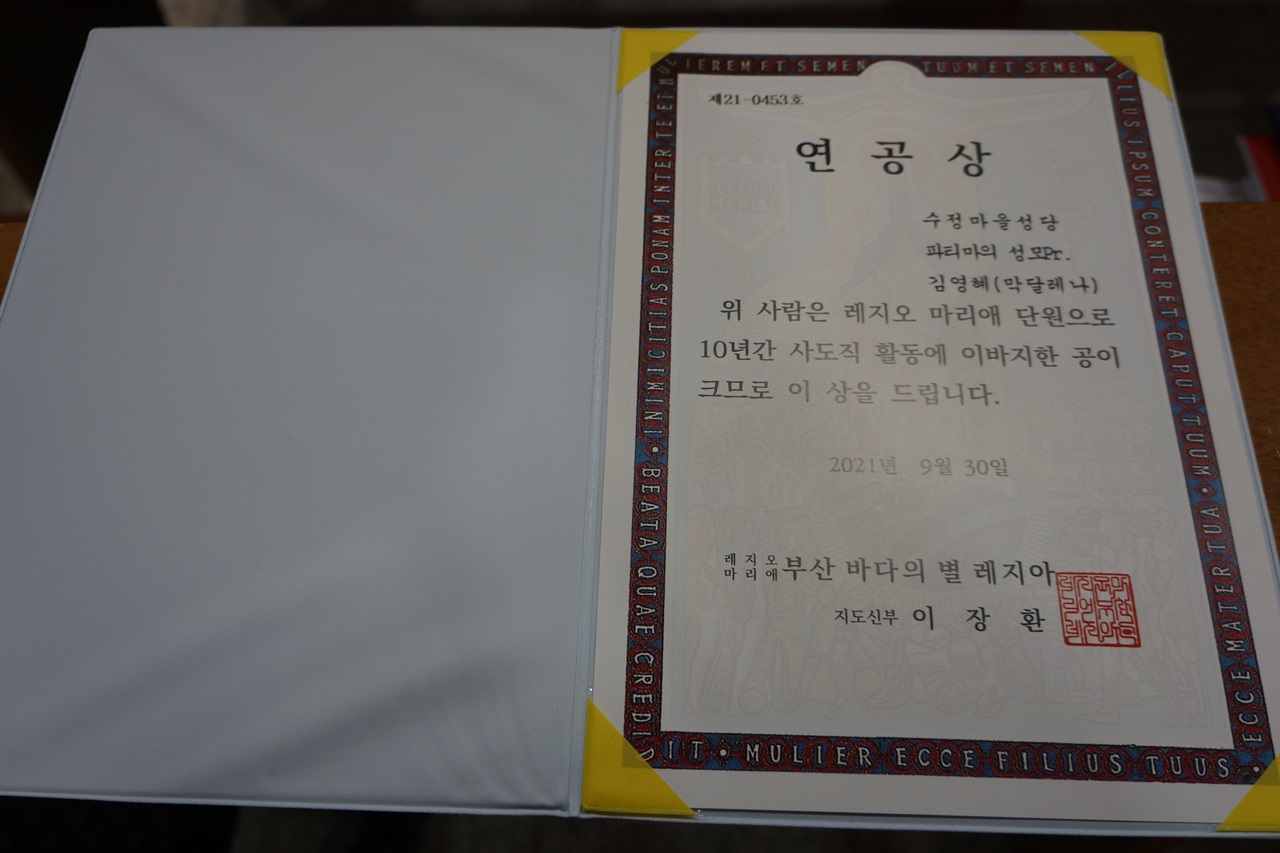 제21-0453호
연 공 상
수정마을성당
파티마의 성모Pr.
김영혜(막달레나)
위 사람은 레지오 마리애 단원으로
10년간 사도직 활동에 이바지한 공이
크므로 이 상을 드립니다.
2021년 9월 30일
레지오
마리애 부산 바다의 별 레지아
지도신부 이 장 환
LEGIO
MARIAE
INIMICITIAS PONAM INTER TE ET MULIEREM ET SEMEN TUUM ET SEMEN ILLIUS IPSUM CONTERET CAPUT TUUM •
BEATA QUAE CREDIDIT • MULIER ECCE FILIUS TUUS •
ECCE MATER TUA •